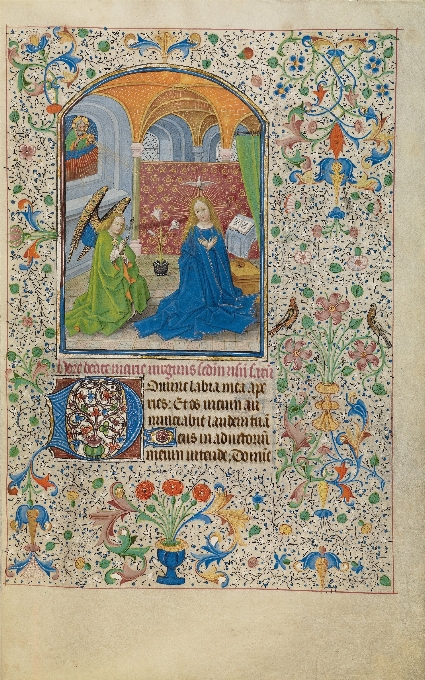 Hore beate marie virginis
Domine labia mea ape
ries: Et os meum an
nunciabit laudem tuā
Deus in adiutoriū
meum intende: Domine